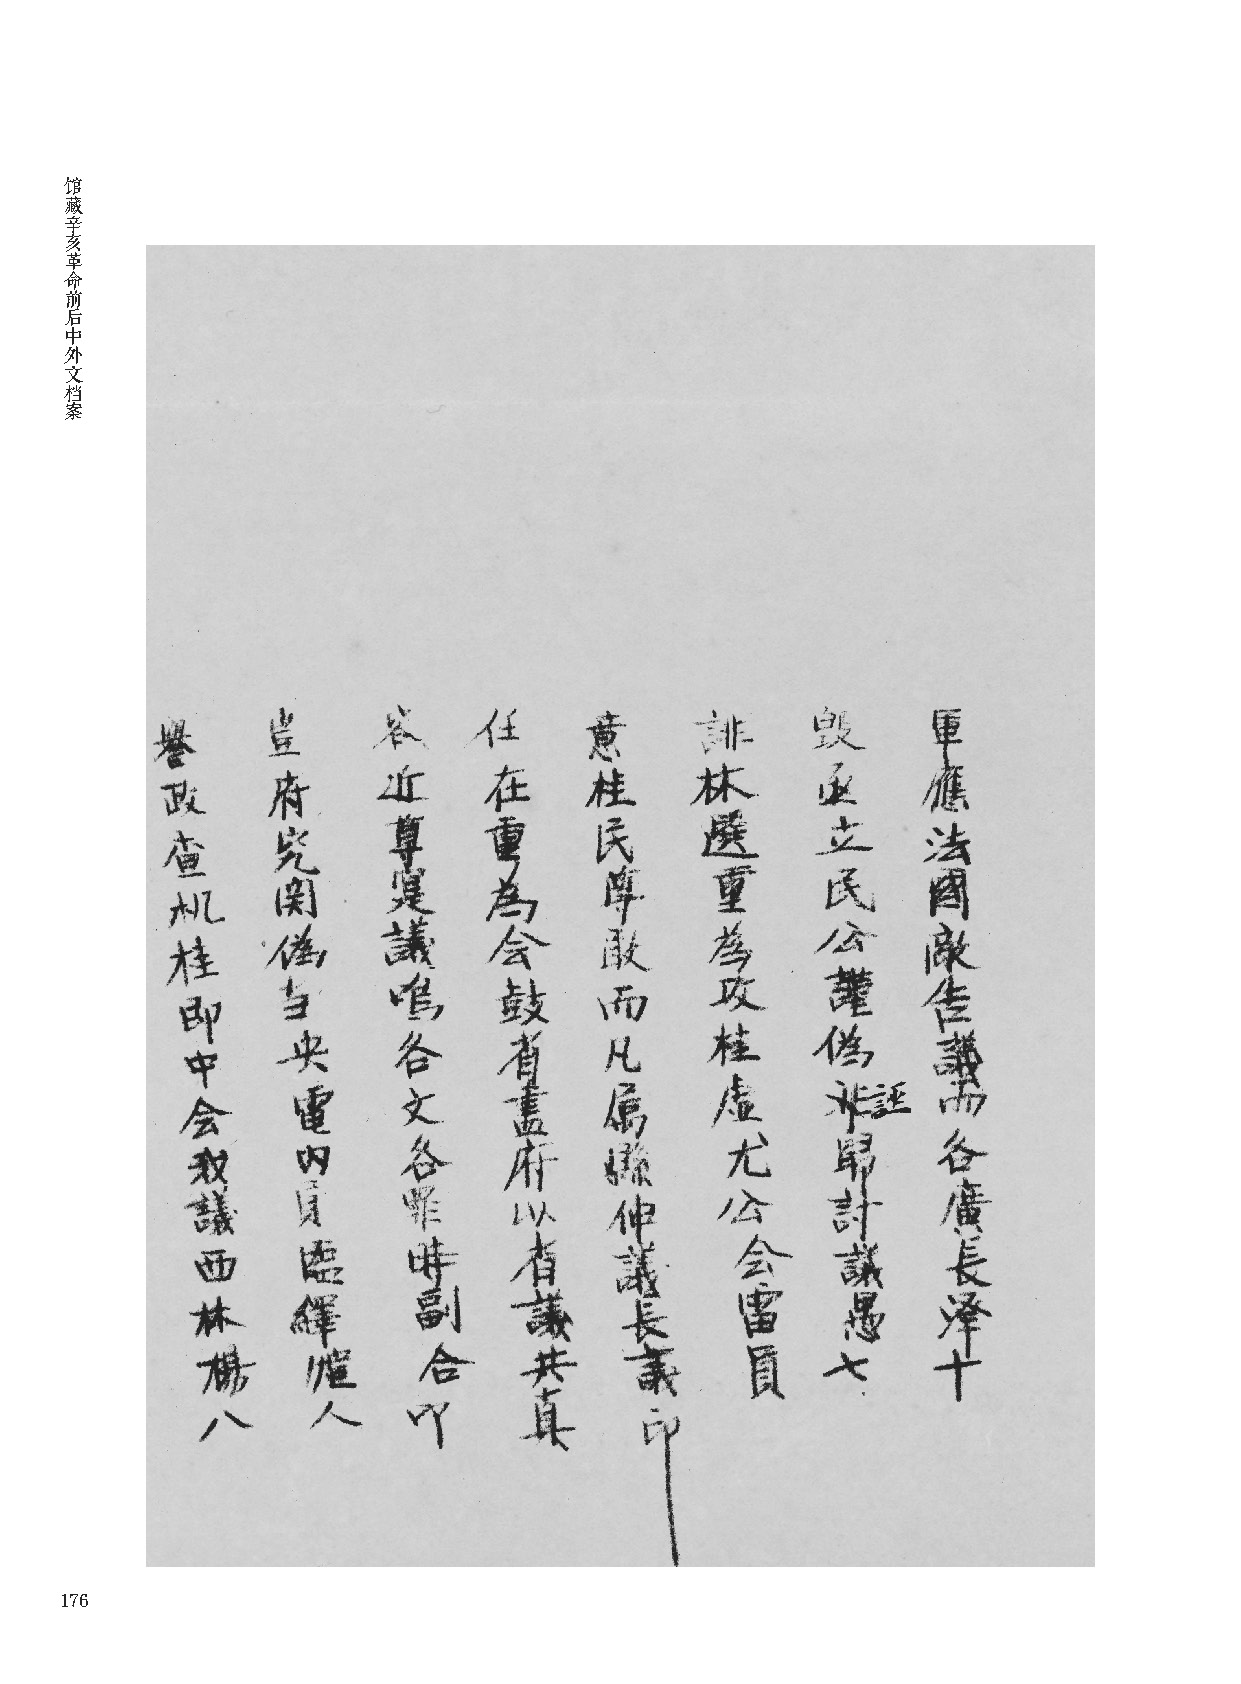 馆藏辛亥革命前后中外文档案
軍應法國敵告議而各廣長澤十
毁丞立民公謹偽非誣歸計議愚七
誹林選重為攻桂虚尤公会雷員
意桂民尊敢而凡属縣仲議長議印
任在重為会鼓省盡府以省議共真
近尊是議嗚各文各罪時副合印
豈府究関偽与央電内員臨繹催人
誉政查机桂即中会敢議西林楊八
176